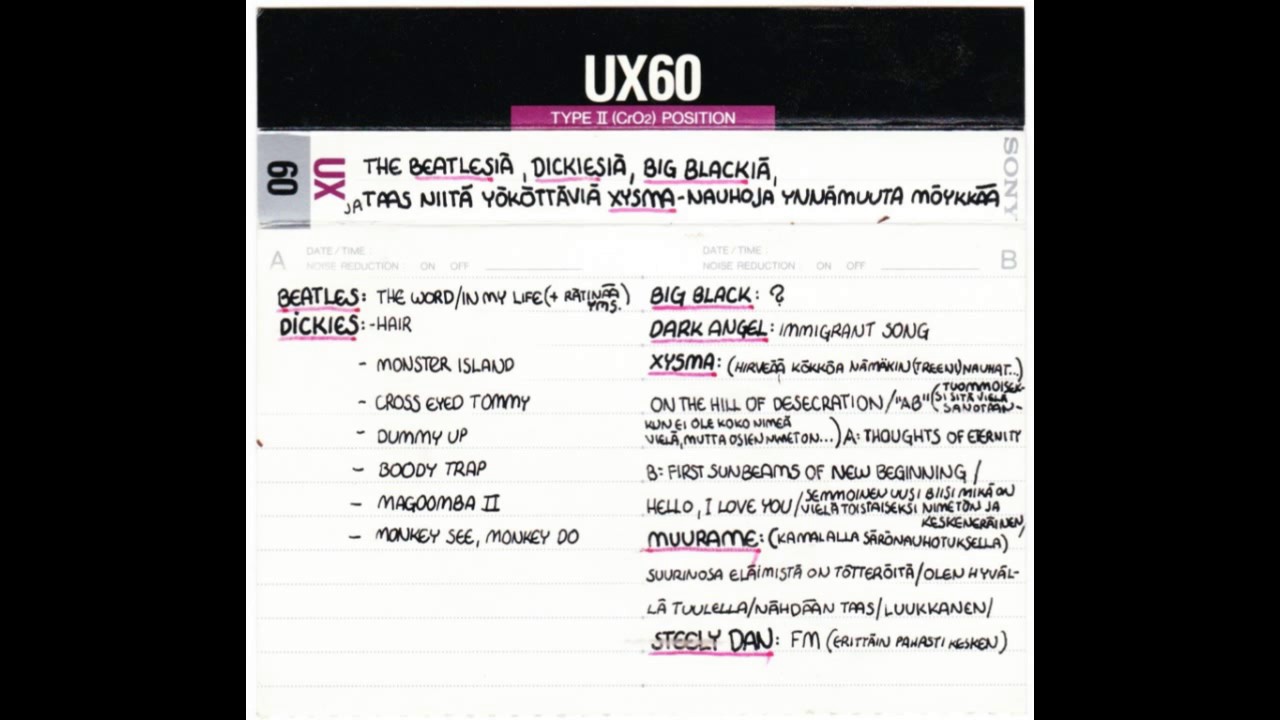 UX60
TYPE II (CrO2) POSITION
60
UX
SONY
THE BEATLESIÄ, DICKIESIÄ, BIG BLACKIÄ,
JA TAAS NIITÄ YÖKÖTTÄVIÄ XYSMA-NAUHOJA YNNÄMUUTA MÖYKKÄÄ
A DATE/TIME :
NOISE REDUCTION : ON OFF
BEATLES: THE WORD/IN MY LIFE (+ RÄTINÄÄ YMS.)
DICKIES: -HAIR
- MONSTER ISLAND
- CROSS EYED TOMMY
- DUMMY UP
- BOODY TRAP
- MAGOOMBA II
- MONKEY SEE, MONKEY DO
DATE/TIME : B
NOISE REDUCTION : ON OFF
BIG BLACK: ?
DARK ANGEL: IMMIGRANT SONG
XYSMA: (HIRVEÄÄ KÖKKÖÄ NÄMÄKIN (TREENI)NAUHAT...)
ON THE HILL OF DESECRATION/"AB" (TUOMMOISEK-
SI SITÄ VIELÄ
SANOTAAN-
KUN EI OLE KOKO NIMEÄ
VIELÄ, MUTTA OSIEN NIMET ON...) A: THOUGHTS OF ETERNITY
B: FIRST SUNBEAMS OF NEW BEGINNING /
HELLO, I LOVE YOU/SEMMOINEN UUSI BIISI MIKÄ ON
VIELÄ TOISTAISEKSI NIMETÖN JA
KESKENERÄINEN/
MUURAME: (KAMALALLA SÄRÖNAUHOTUKSELLA)
SUURINOSA ELÄIMISTÄ ON TÖTTERÖITÄ/OLEN HYVÄL-
LÄ TUULELLA/NÄHDÄÄN TAAS/LUUKKANEN/
STEELY DAN: FM (ERITTÄIN PAHASTI KESKEN)